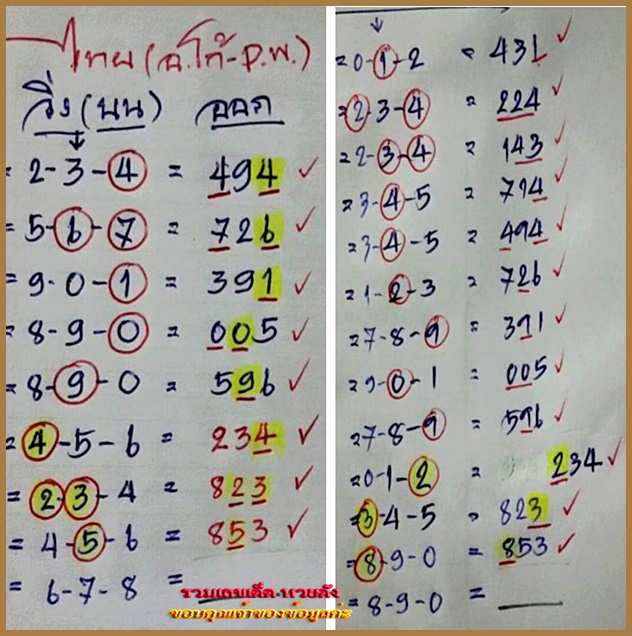 ไทย (อ.โก้-P.W.)
วิ่ง (บน) ออก
= 2-3-4 = 494 ✓
= 5-6-7 = 726 ✓
= 9-0-1 = 391 ✓
= 8-9-0 = 005 ✓
= 8-9-0 = 596 ✓
= 4-5-6 = 234 ✓
= 2-3-4 = 823 ✓
= 4-5-6 = 853 ✓
= 6-7-8 =
= 0-1-2 = 431 ✓
= 2-3-4 = 224 ✓
= 2-3-4 = 143 ✓
= 3-4-5 = 714 ✓
= 3-4-5 = 494 ✓
= 1-2-3 = 726 ✓
= 7-8-9 = 391 ✓
= 9-0-1 = 005 ✓
= 7-8-9 = 596 ✓
= 0-1-2 = 234 ✓
= 3-4-5 = 823 ✓
= 8-9-0 = 853 ✓
= 8-9-0 = ____
รวมเลขเด็ด-หวยดัง
ขอบคุณเจ้าของข้อมูลค่ะ